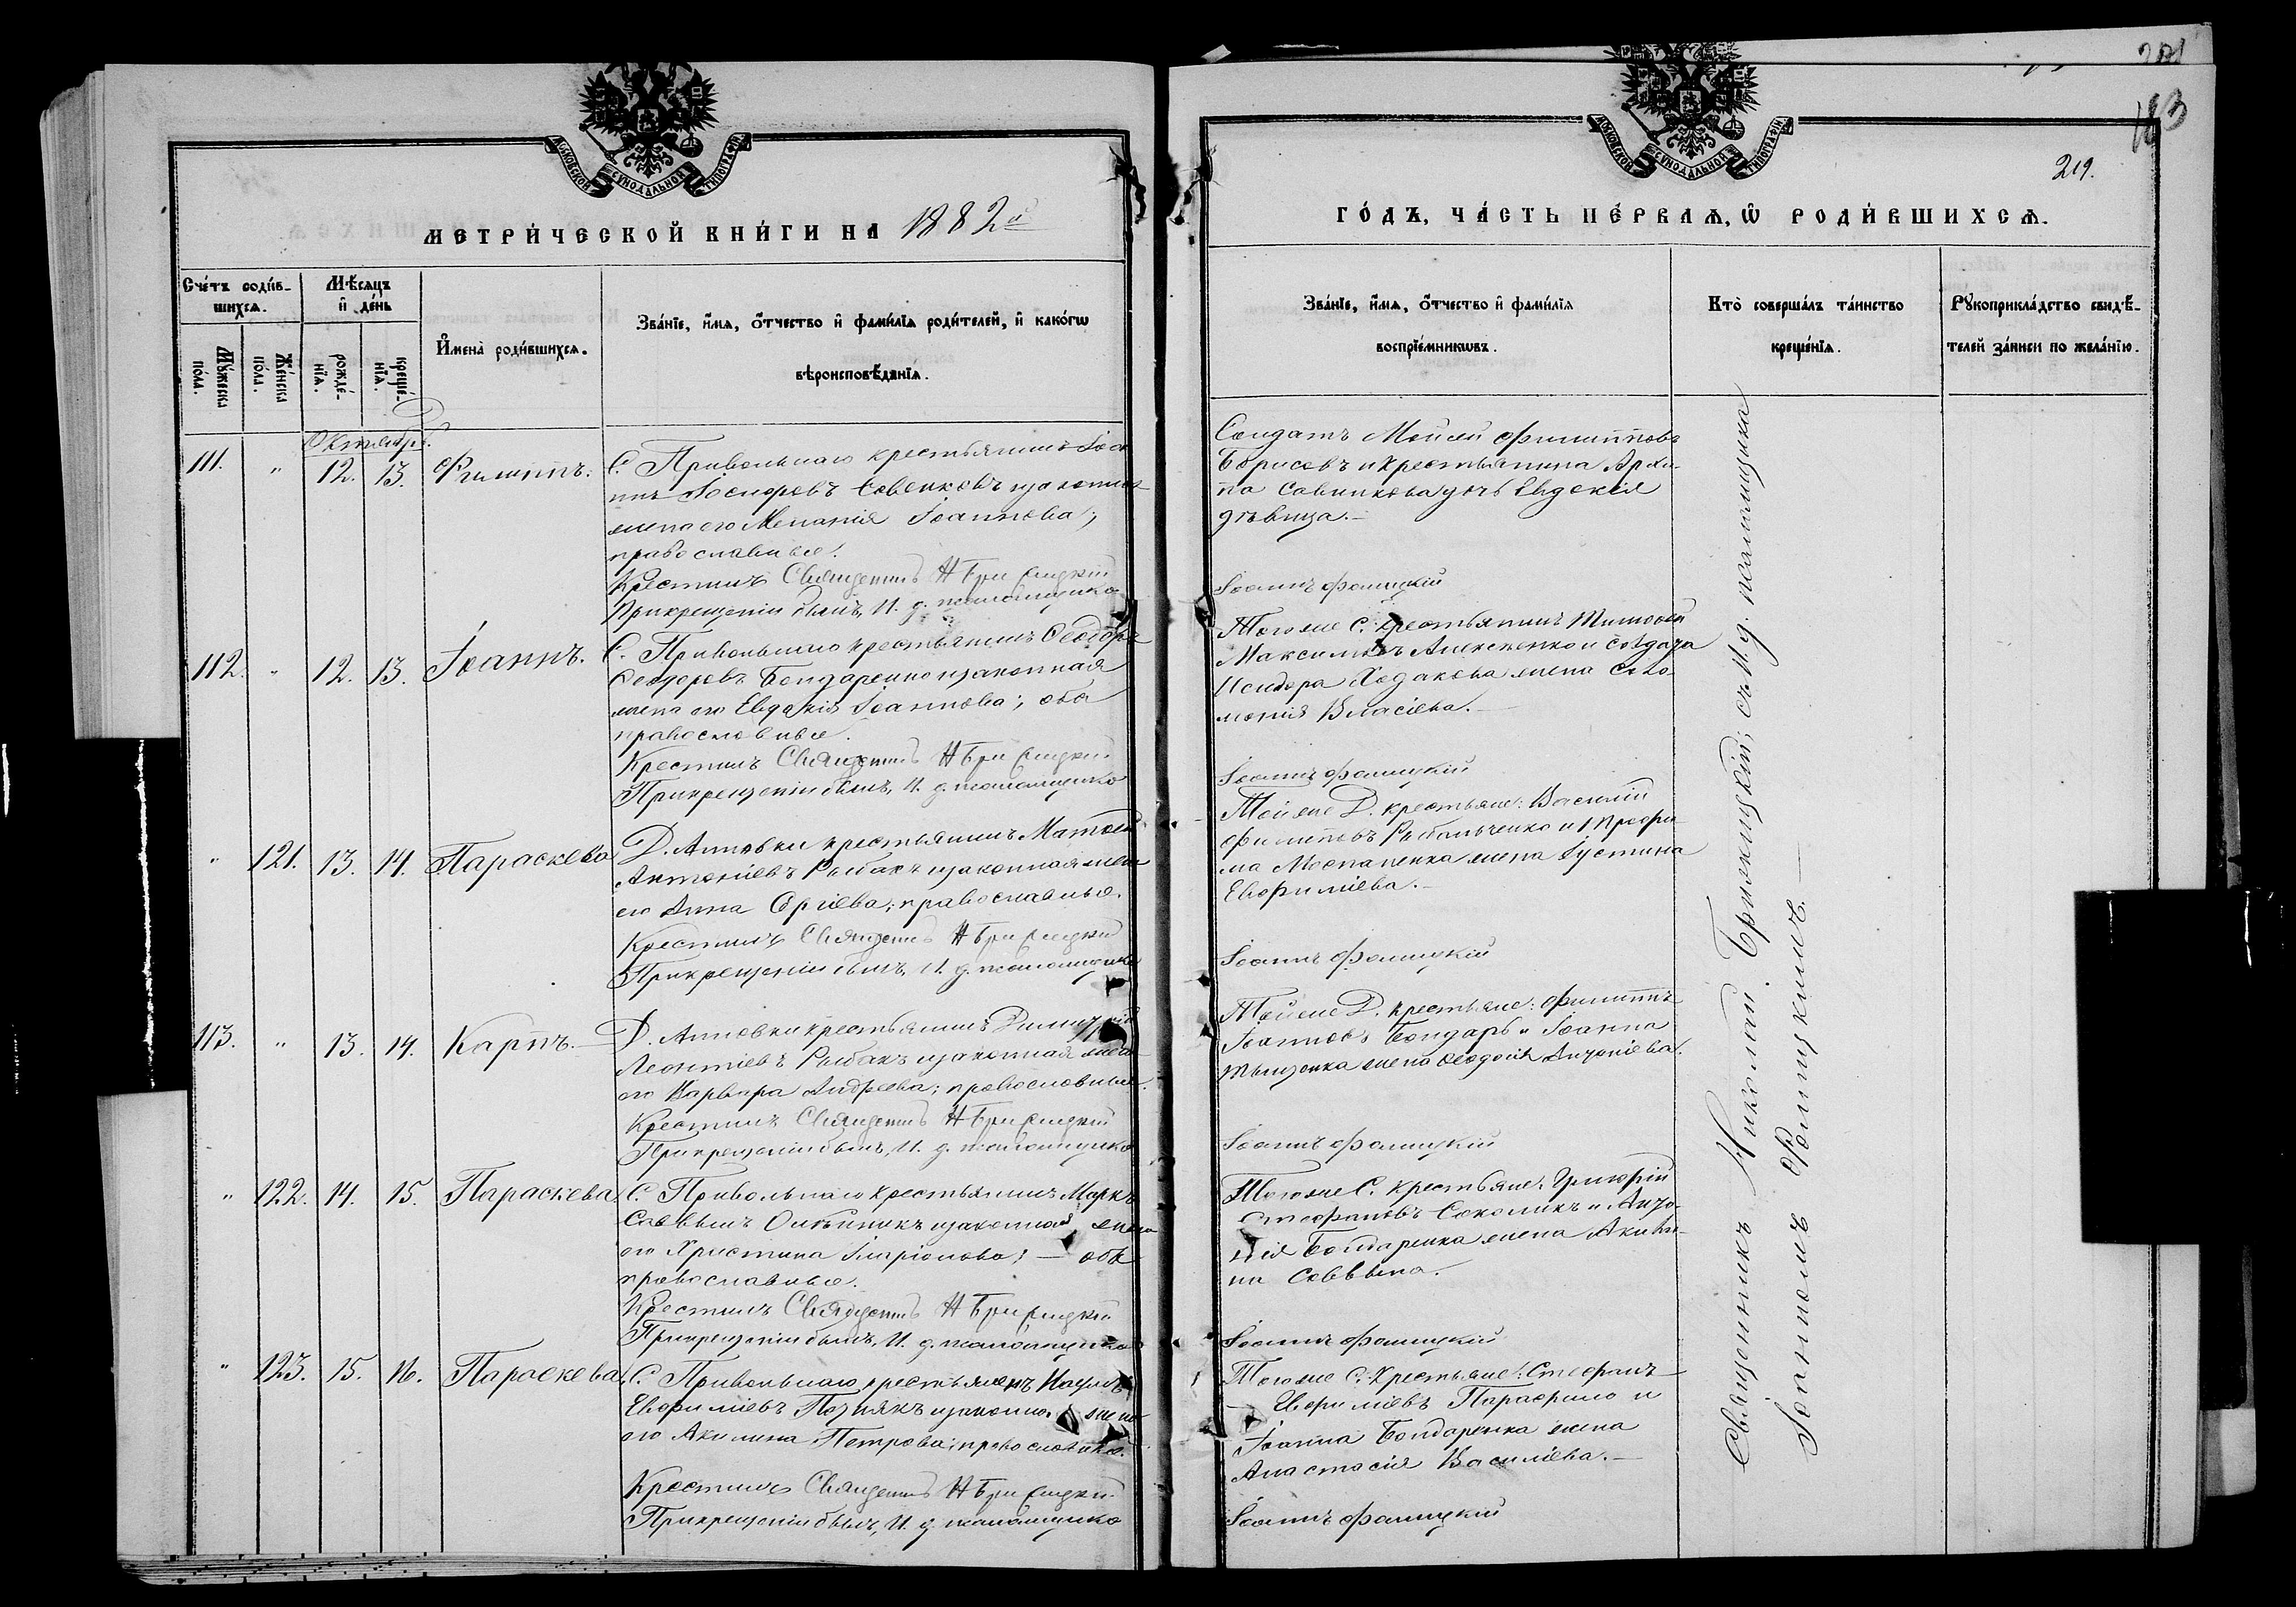 МОСКОВСКОЙ СУНОДАЛЬНОЙ ТИПОГРАФІИ
МЕТРИ́ЧЕСКОЙ КНИ́ГИ НА 1882й
Сче́тъ роди́в-
шихсѧ.
Мѣ́сѧцъ
и҆ де́нь
Мꙋ́жеска
пола.
Же́нска
по́ла.
рожде́-
нїѧ.
креще́-
нїѧ.
И҆мена̀ роди́вшихсѧ.
Зва́нїе, и҆́мѧ, ѻ҆́тчество и҆ фами́лїѧ роди́телей, и҆ како́гѡ
вѣроисповѣ́данїѧ.
Октябрь.
111. " 12. 13. Филиппъ.
С. Привольнаго крестьянинъ Іоси
пъ Іосифовъ Савенковъ и законная
жена его Меланія Іоаннова;
православные.
Крестилъ Священникъ Н Брилицкій
При крещеніи былъ, И. д. псаломщика
112. " 12. 13. Іоаннъ.
С. Привольнаго крестьянинъ Ѳеодоръ
Ѳеодоровъ Бондаренко и законная
жена его Евдокія Іоаннова; оба
православные.
Крестилъ Священникъ Н Брилицкій
При крещеніи былъ, И. д. псаломщика
" 121. 13. 14. Параскева
Д. Анновки крестьянинъ Матѳей
Антоніевъ Рыбакъ и законная жена
его Анна Сергіева; православные.
Крестилъ Священникъ Н Брилицкій
При крещеніи былъ, И. д. псаломщика
113. " 13. 14. Карпъ.
Д. Анновки крестьянинъ Димитрій
Леонтіевъ Рыбакъ и законная жена
его Варвара Андреева; православные.
Крестилъ Священникъ Н Брилицкій
При крещеніи былъ, И. д. псаломщика
" 122. 14. 15. Параскева
С. Привольнаго крестьянинъ Маркъ
Саввинъ Олейникъ и законная жена
его Христина Иларіонова; — оба
православные.
Крестилъ Священникъ Н Брилицкій
При крещеніи былъ, И. д. псаломщика
" 123. 15. 16. Параскева
С. Привольнаго крестьянинъ Наумъ
Евфиміевъ Познякъ и законная жена
его Акилина Петрова; православные.
Крестилъ Священникъ Н Брилицкій
При крещеніи былъ, И. д. псаломщика
183
219.
МОСКОВСКОЙ СУНОДАЛЬНОЙ ТИПОГРАФІИ
ГО́ДЪ, ЧА́СТЬ ПЕ́РВАѦ, Ѽ РОДИ́ВШИХСѦ.
Зва́нїе, и҆́мѧ, ѻ҆́тчество и҆ фами́лїѧ
воспрїе́мникѡвъ.
Кто̀ соверша́лъ та́инство
креще́нїѧ.
Рꙋкоприкла́дство свидѣ́-
телей за́писи по жела́нїю.
Солдатъ Мойсей Филипповъ
Борисовъ и крестьянина Архи-
па Савинкова дочь Евдокія
дѣвица.
Іоаннъ Фолицкій
Тогоже С. крестьянинъ Тимоѳей
Максимовъ Алексеенко и солдата
Исидора Ходакова жена Соло-
монія Власіева.
Іоаннъ Фолицкій
Тойже Д. крестьяне: Василій
Филиповъ Рыбальченко и Трофи-
ма жена Іустина
Евфиміева.
Іоаннъ Фолицкій
Тойже Д. крестьяне: Филиппъ
Іоанновъ Бондарь и Іоанна
жена Ѳеодосія Антоніева.
Іоаннъ Фолицкій
Тогоже С. крестьяне: Григорій
Стефановъ Соколикъ и Анто-
нія Бондаренка жена Акили-
на Саввина.
Іоаннъ Фолицкій
Тогоже С. крестьяне: Стефанъ
Евфиміевъ и
Іоанна Бондаренка жена
Анастасія Василіева.
Іоаннъ Фолицкій
Священникъ Николай Брилицкій; съ И. д. псаломщика
Іоанномъ Фолицкимъ.